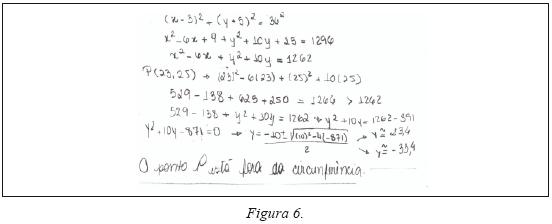 (x-3)² + (y+5)² = 36²
x² - 6x + 9 + y² + 10y + 25 = 1296
x² - 6x + y² + 10y = 1262
P(23,25) → (23)² - 6(23) + (25)² + 10(25)
529 - 138 + 625 + 250 = 1266 > 1262
529 - 138 + y² + 10y = 1262 → y² + 10y = 1262 - 391
y² + 10y - 871 = 0 → y = -10 ± √(10)² - 4(-871) / 2 → y ≅ 23,4
→ y ≅ -33,4
O ponto P está fora da circunferência.
Figura 6.